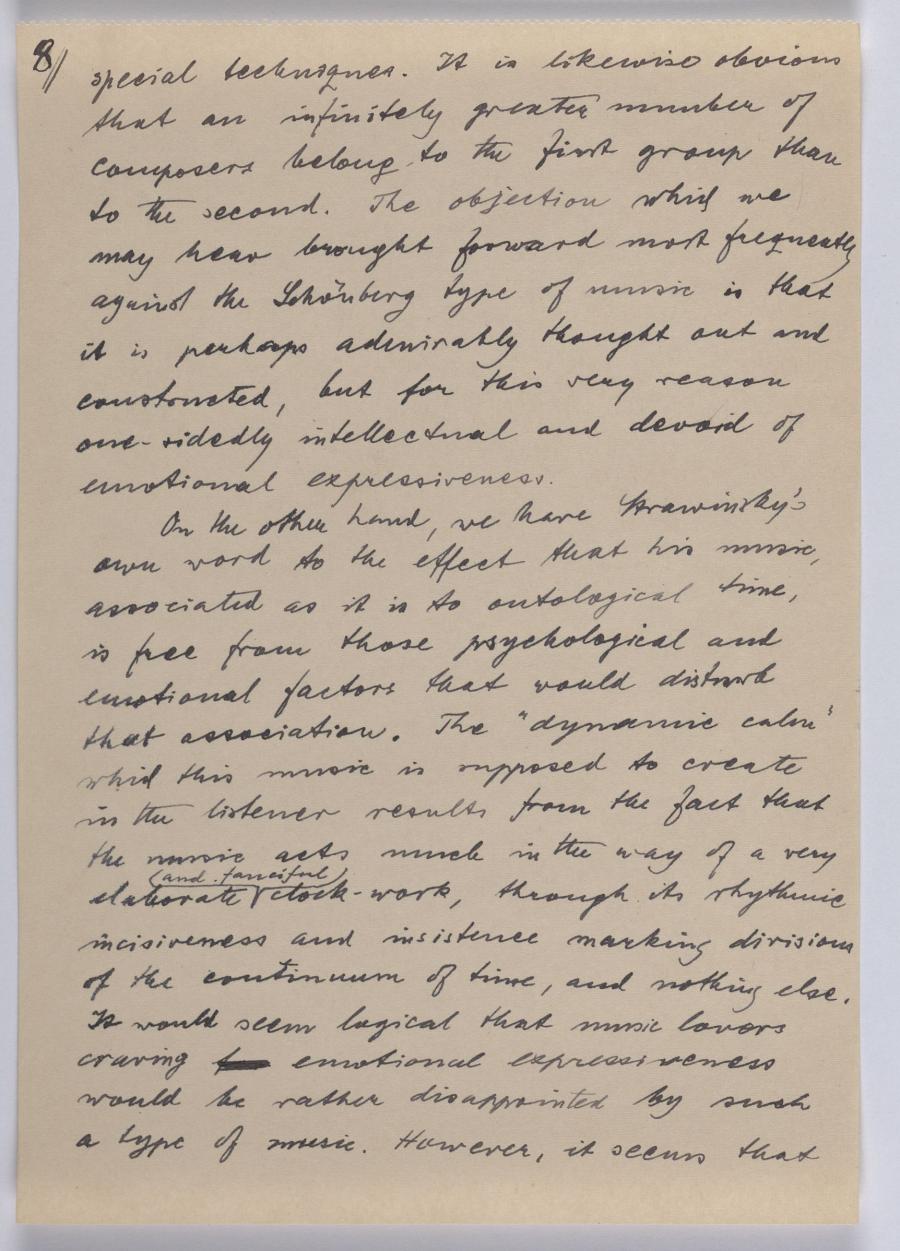 8//
special techniques. It is likewise obvious
that an infinitely greater number of
composers belong to the first group than
to the second. The objection which we
may hear brought forward most frequently
against the Schönberg type of music is that
it is perhaps admirably thought out and
constructed, but for this very reason
one-sidedly intellectual and devoid of
emotional expressiveness.
On the other hand, we have Strawinsky's
own word to the effect that his music,
associated as it is to ontological time,
is free from those psychological and
emotional factors that would disturb
that association. The "dynamic calm"
which this music is supposed to create
in the listener results from the fact that
the music acts much in the way of a very
(and fanciful)
elaborate clock-work, through its rhythmic
incisiveness and insistence marking divisions
of the continuum of time, and nothing else.
It would seem logical that music lovers
craving emotional expressiveness
would be rather disappointed by such
a type of music. However, it seems that